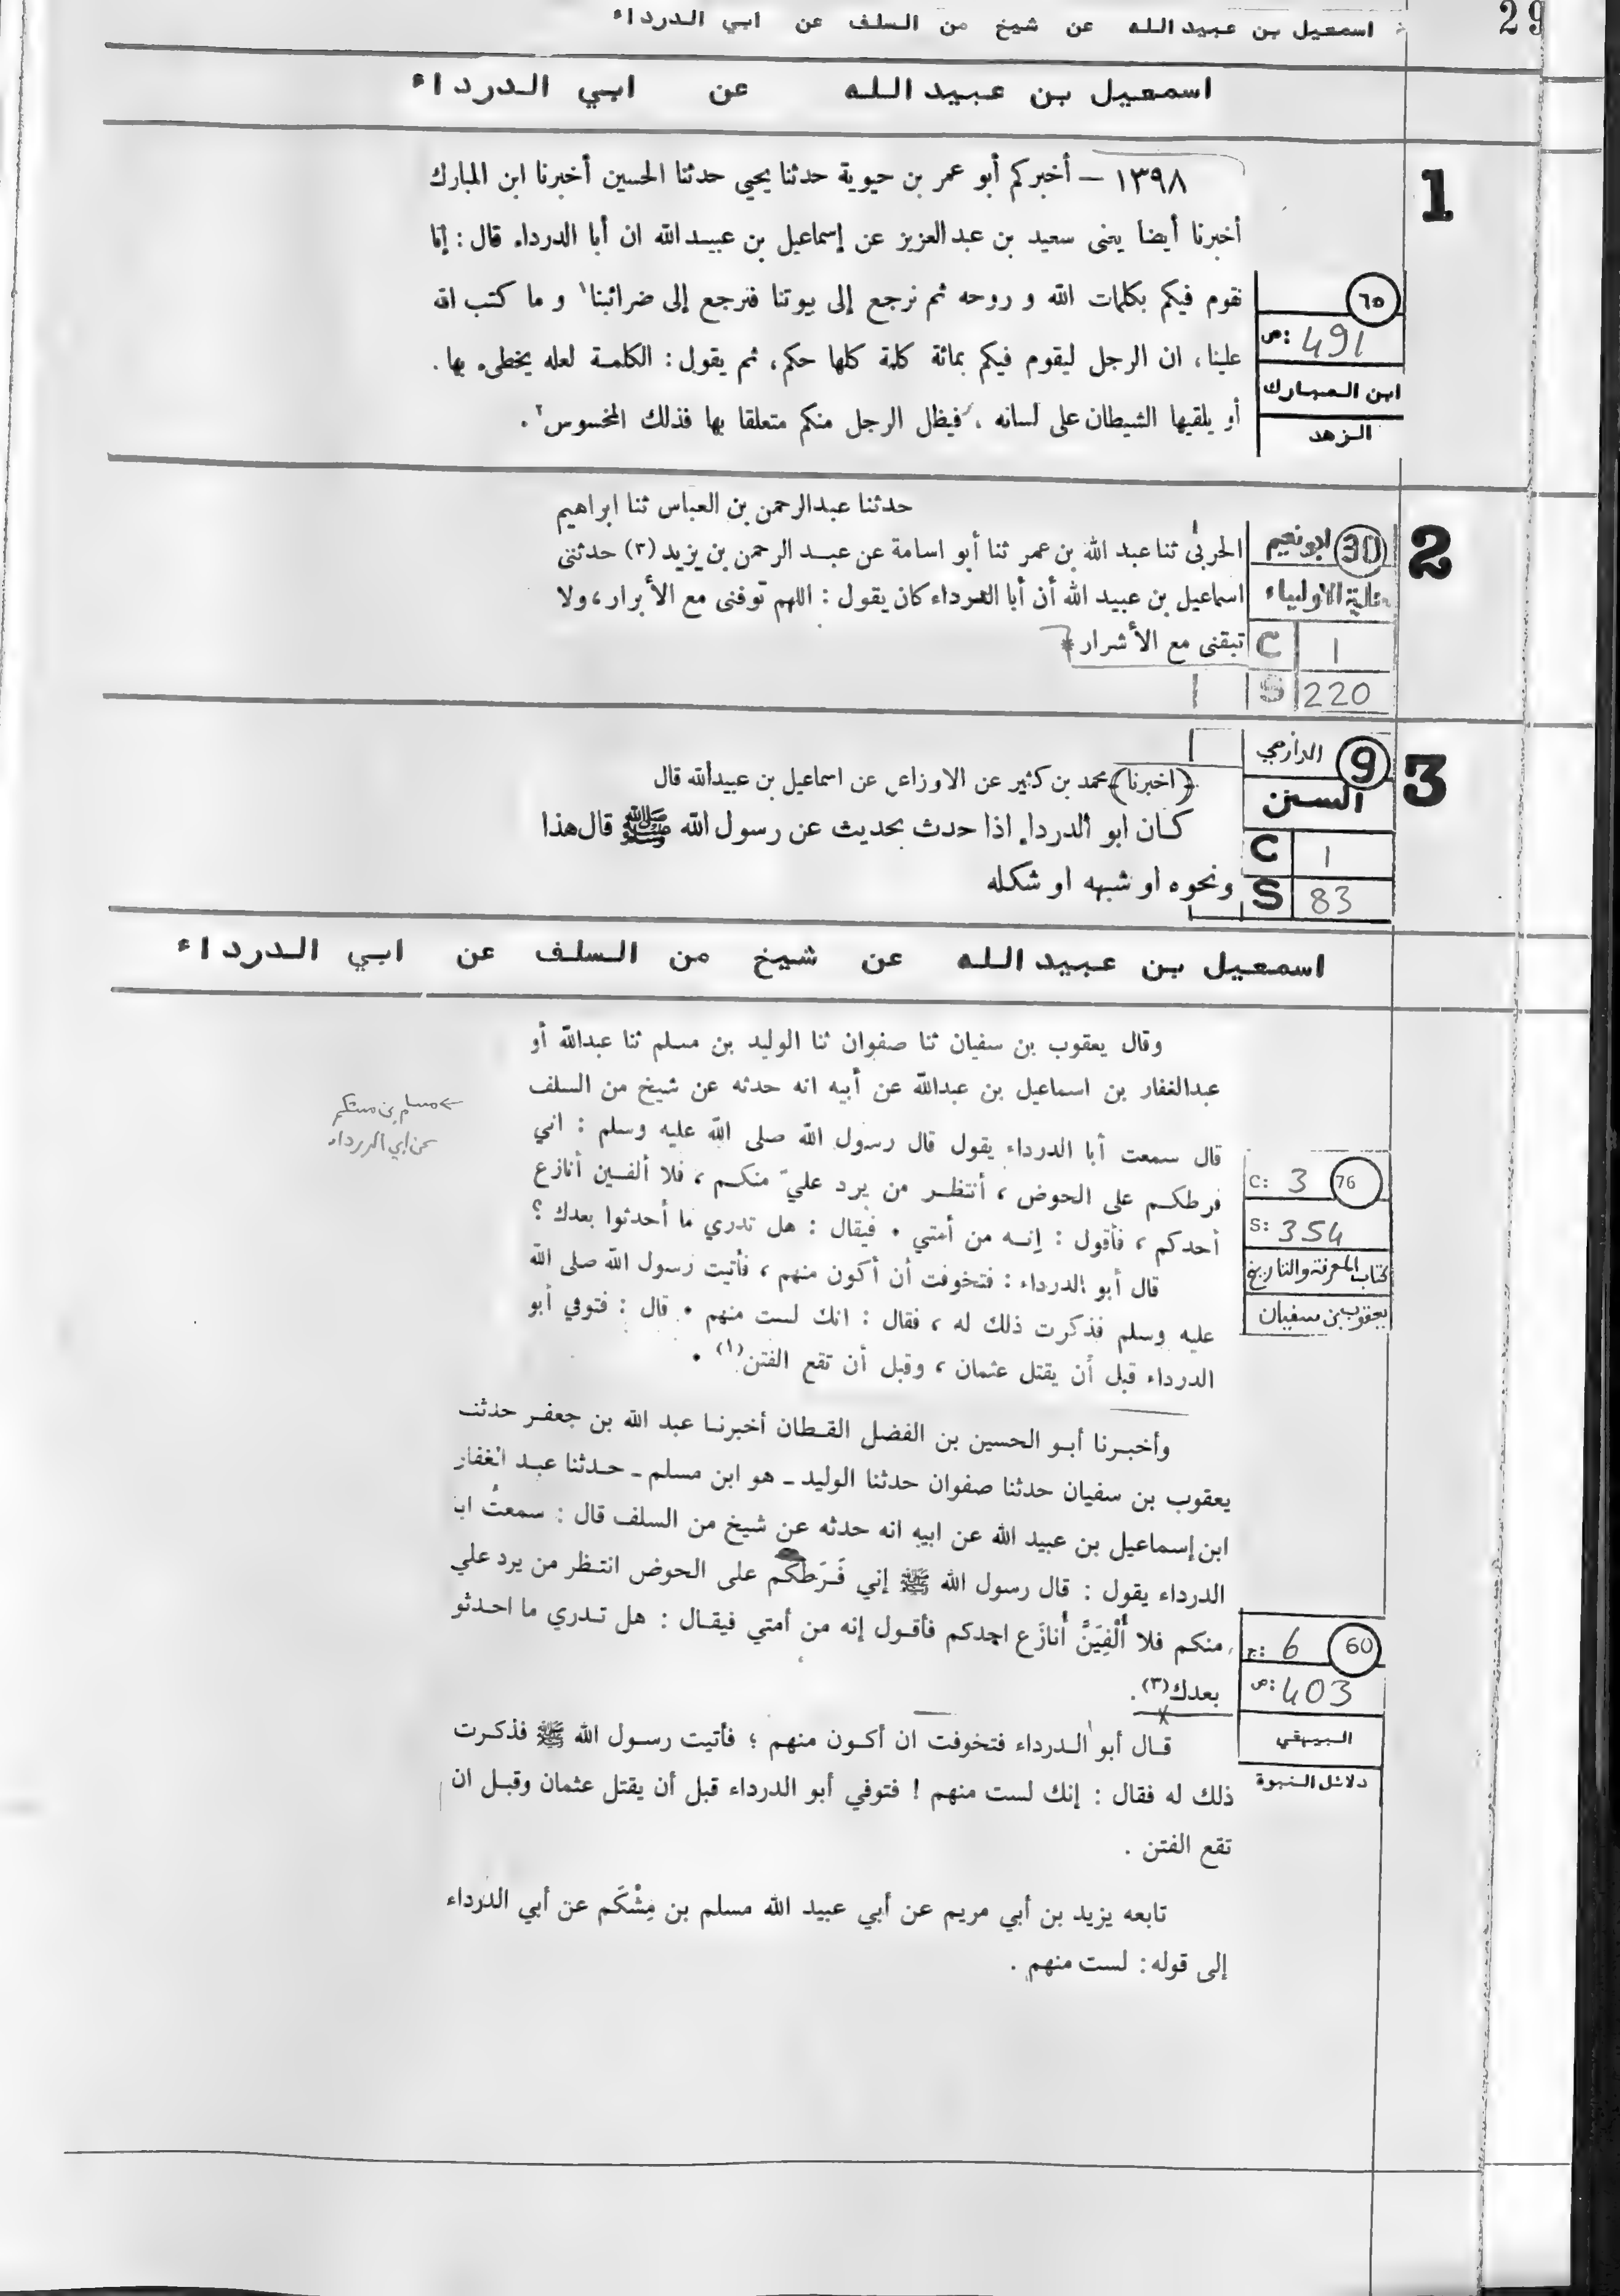 29
اسمعيل بن عبيد الله عن شيخ من السلف عن ابي الدرداء
اسمعيل بن عبيد الله عن ابي الدرداء
1
١٣٩٨ – أخبركم أبو عمر بن حيوية حدثنا يحيى حدثنا الحسين أخبرنا ابن المبارك
أخبرنا أيضا يعنى سعيد بن عبد العزيز عن إسماعيل بن عبيد الله ان أبا الدرداء قال : إنا
نقوم فيكم بكلمات الله و روحه ثم نرجع إلى بيوتنا فنرجع إلى ضرائبنا١ و ما كتب الله
علينا ، ان الرجل ليقوم فيكم بمائة كلمة كلها حكم ، ثم يقول : الكلمة لعله يخطىء بها .
أو يلقيها الشيطان على لسانه ، فيظل الرجل منكم متعلقا بها فذلك المخسوس٢ .
٦٥
ص: 491
ابن المبارك
الزهد
2
حدثنا عبدالرحمن بن العباس ثنا ابراهيم
الحربى ثنا عبد الله بن عمر ثنا أبو اسامة عن عبد الرحمن بن يزيد (٣) حدثنى
اسماعيل بن عبيد الله أن أبا الدرداء كان يقول : اللهم توفنى مع الأبرار ، ولا
تبقنى مع الأشرار *
30 ابو نعيم
حلية الاولياء
C 1
S 220
3
(اخبرنا) محمد بن كثير عن الاوزاعى عن اسماعيل بن عبيدالله قال
كان ابو الدرداء اذا حدث بحديث عن رسول الله ﷺ قال هذا
ونحوه او شبهه او شكله
9 الدارمي
السنن
C 1
S 83
اسمعيل بن عبيد الله عن شيخ من السلف عن ابي الدرداء
وقال يعقوب بن سفيان ثنا صفوان ثنا الوليد بن مسلم ثنا عبدالله أو
عبدالغفار بن اسماعيل بن عبدالله عن أبيه انه حدثه عن شيخ من السلف
قال سمعت أبا الدرداء يقول قال رسول الله صلى الله عليه وسلم : اني
فرطكم على الحوض ، أنتظر من يرد عليّ منكم ، فلا ألفين أنازع
أحدكم ، فأقول : إنه من أمتي • فيقال : هل تدري ما أحدثوا بعدك ؟
قال أبو الدرداء : فتخوفت أن أكون منهم ، فأتيت رسول الله صلى الله
عليه وسلم فذكرت ذلك له ، فقال : انك لست منهم • قال : فتوفي أبو
الدرداء قبل أن يقتل عثمان ، وقبل أن تقع الفتن(١) •
← مسلم بن مشكم
عن ابي الدرداء
76 C: 3
S: 354
كتاب المعرفة والتاريخ
يعقوب بن سفيان
وأخبرنا أبو الحسين بن الفضل القطان أخبرنا عبد الله بن جعفر حدثنـ
يعقوب بن سفيان حدثنا صفوان حدثنا الوليد ـ هو ابن مسلم ـ حدثنا عبد الغفار
ابن إسماعيل بن عبيد الله عن ابيه انه حدثه عن شيخ من السلف قال : سمعتُ ابا
الدرداء يقول : قال رسول الله ﷺ إني فَرَطُكُم على الحوض انتظر من يرد علي
منكم فلا أَلْفِيَنَّ أُنازَع احدكم فأقول إنه من أمتي فيقال : هل تدري ما احدثو
بعدك(٣) .
قال أبو الدرداء فتخوفت ان أكون منهم ؛ فأتيت رسول الله ﷺ فذكرت
ذلك له فقال : إنك لست منهم ! فتوفي أبو الدرداء قبل أن يقتل عثمان وقبل ان
تقع الفتن .
تابعه يزيد بن أبي مريم عن أبي عبيد الله مسلم بن مِشْكَم عن أبي الدرداء
إلى قوله : لست منهم .
60 ج: 6
ص: 403
البيهقي
دلائل النبوة